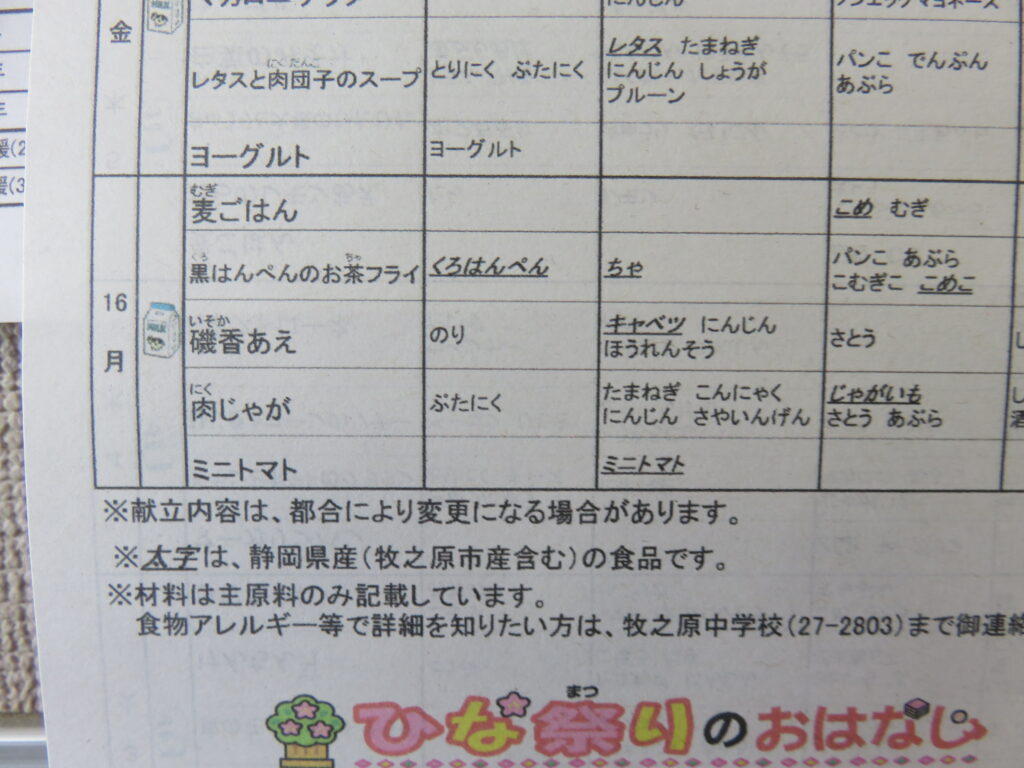 金
レタスと肉団子のスープ とりにく ぶたにく レタス たまねぎ にんじん しょうが プルーン パンこ でんぷん あぶら
ヨーグルト ヨーグルト
16
月
MILK
むぎ
麦ごはん こめ むぎ
くろ ちゃ
黒はんぺんのお茶フライ くろはんぺん ちゃ パンこ あぶら こむぎこ こめこ
いそか
磯香あえ のり キャベツ にんじん ほうれんそう さとう
にく
肉じゃが ぶたにく たまねぎ こんにゃく にんじん さやいんげん じゃがいも さとう あぶら
ミニトマト ミニトマト
※献立内容は、都合により変更になる場合があります。
※太字は、静岡県産(牧之原市産含む)の食品です。
※材料は主原料のみ記載しています。
食物アレルギー等で詳細を知りたい方は、牧之原中学校(27-2803)まで御連絡
まつ
ひな祭りのおはなし